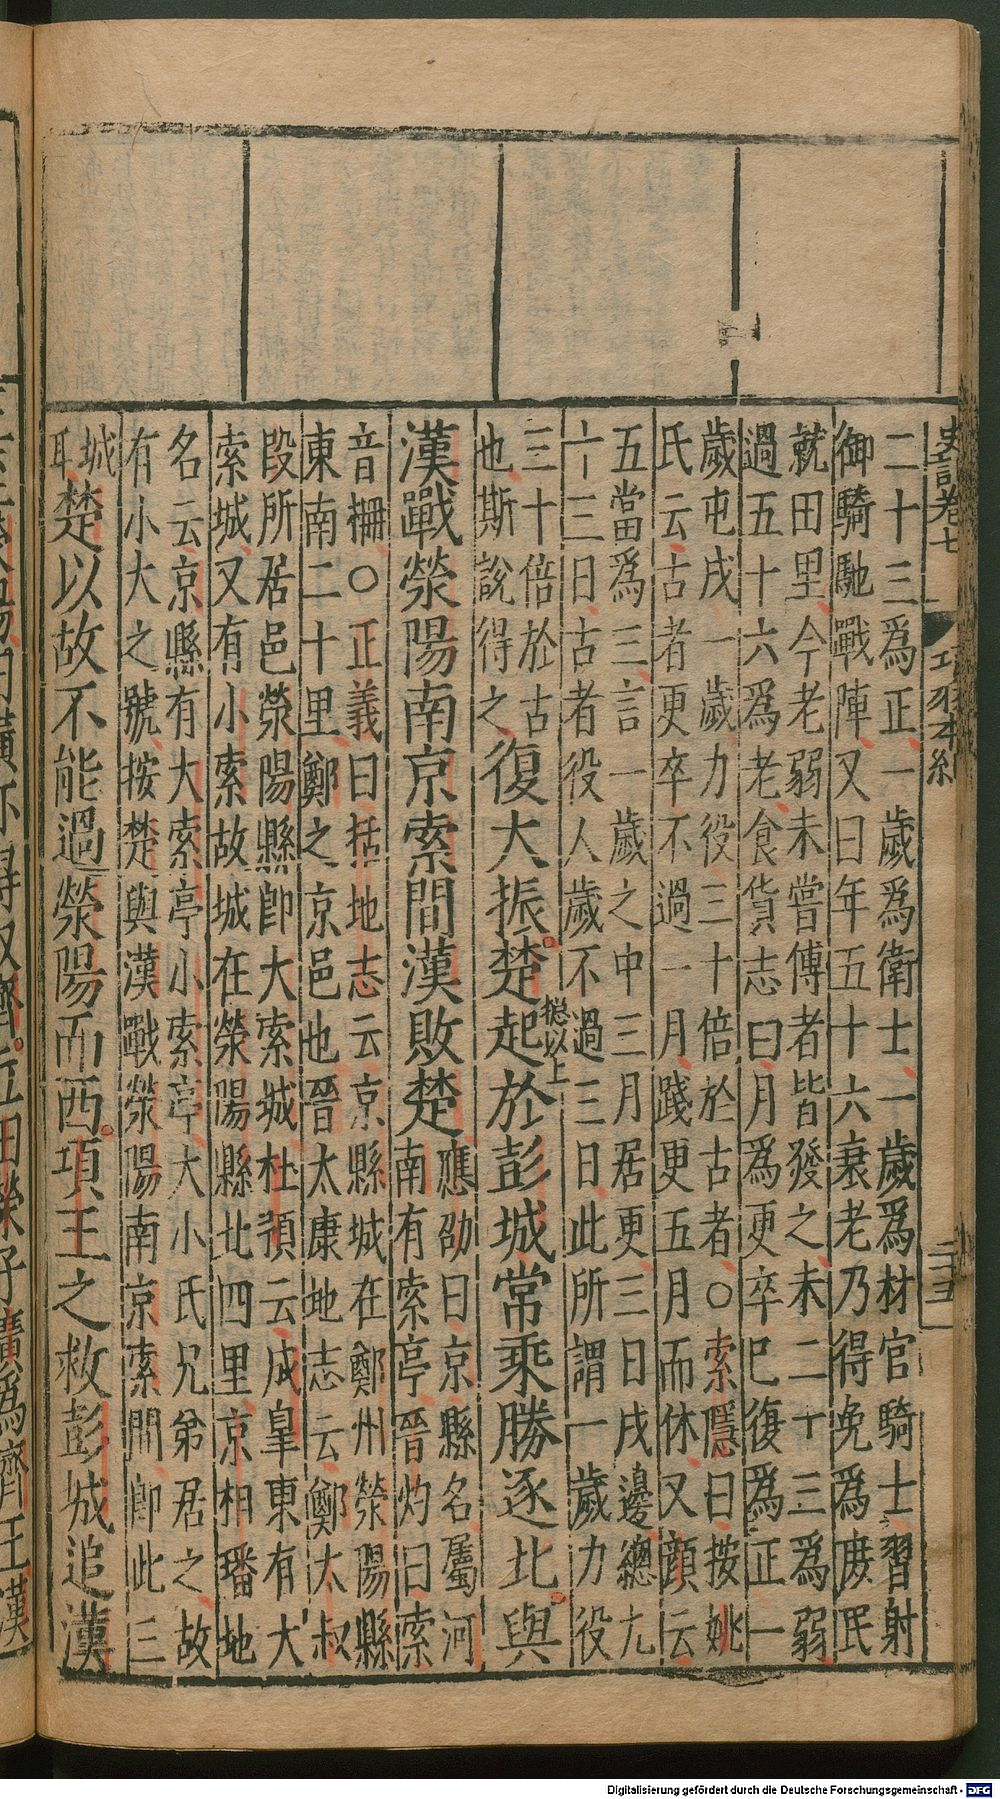 史記卷七
二十三爲正一歲爲衛士一歲爲材官騎士習射
御騎馳戰陣又曰年五十六衰老乃得免爲庻民
就田里今老弱未嘗傅者皆發之未二十三爲弱
過五十六爲老食貨志曰月爲更卒巳復爲正一
歲屯戍一歲力役三十倍於古者○索隱曰按姚
氏云古者更卒不過一月踐更五月而休又顔云
五當爲三言一歲之中三月居更三日戍邊總九
十三日古者役人歲不過三日此所謂一歲力役
三十倍於古
也斯說得之
復大振楚起於彭城常乘勝逐北與
捴以上
漢戰滎陽南京索間漢敗楚
應劭曰京縣名屬河
南有索亭晉灼曰索
音柵○正義曰括地志云京縣城在鄭州滎陽縣
東南二十里鄭之京邑也晉太康地志云鄭太叔
段所居邑滎陽縣卽大索城杜預云成皐東有大
索城又有小索故城在滎陽縣北四里京相璠地
名云京縣有大索亭小索亭大小氏兄弟居之故
有小大之號按楚與漢戰滎陽南京索間卽此三
城
耳
楚以故不能過滎陽而西項王之救彭城追漢
Digitalisierung gefördert durch die Deutsche Forschungsgemeinschaft - DFG